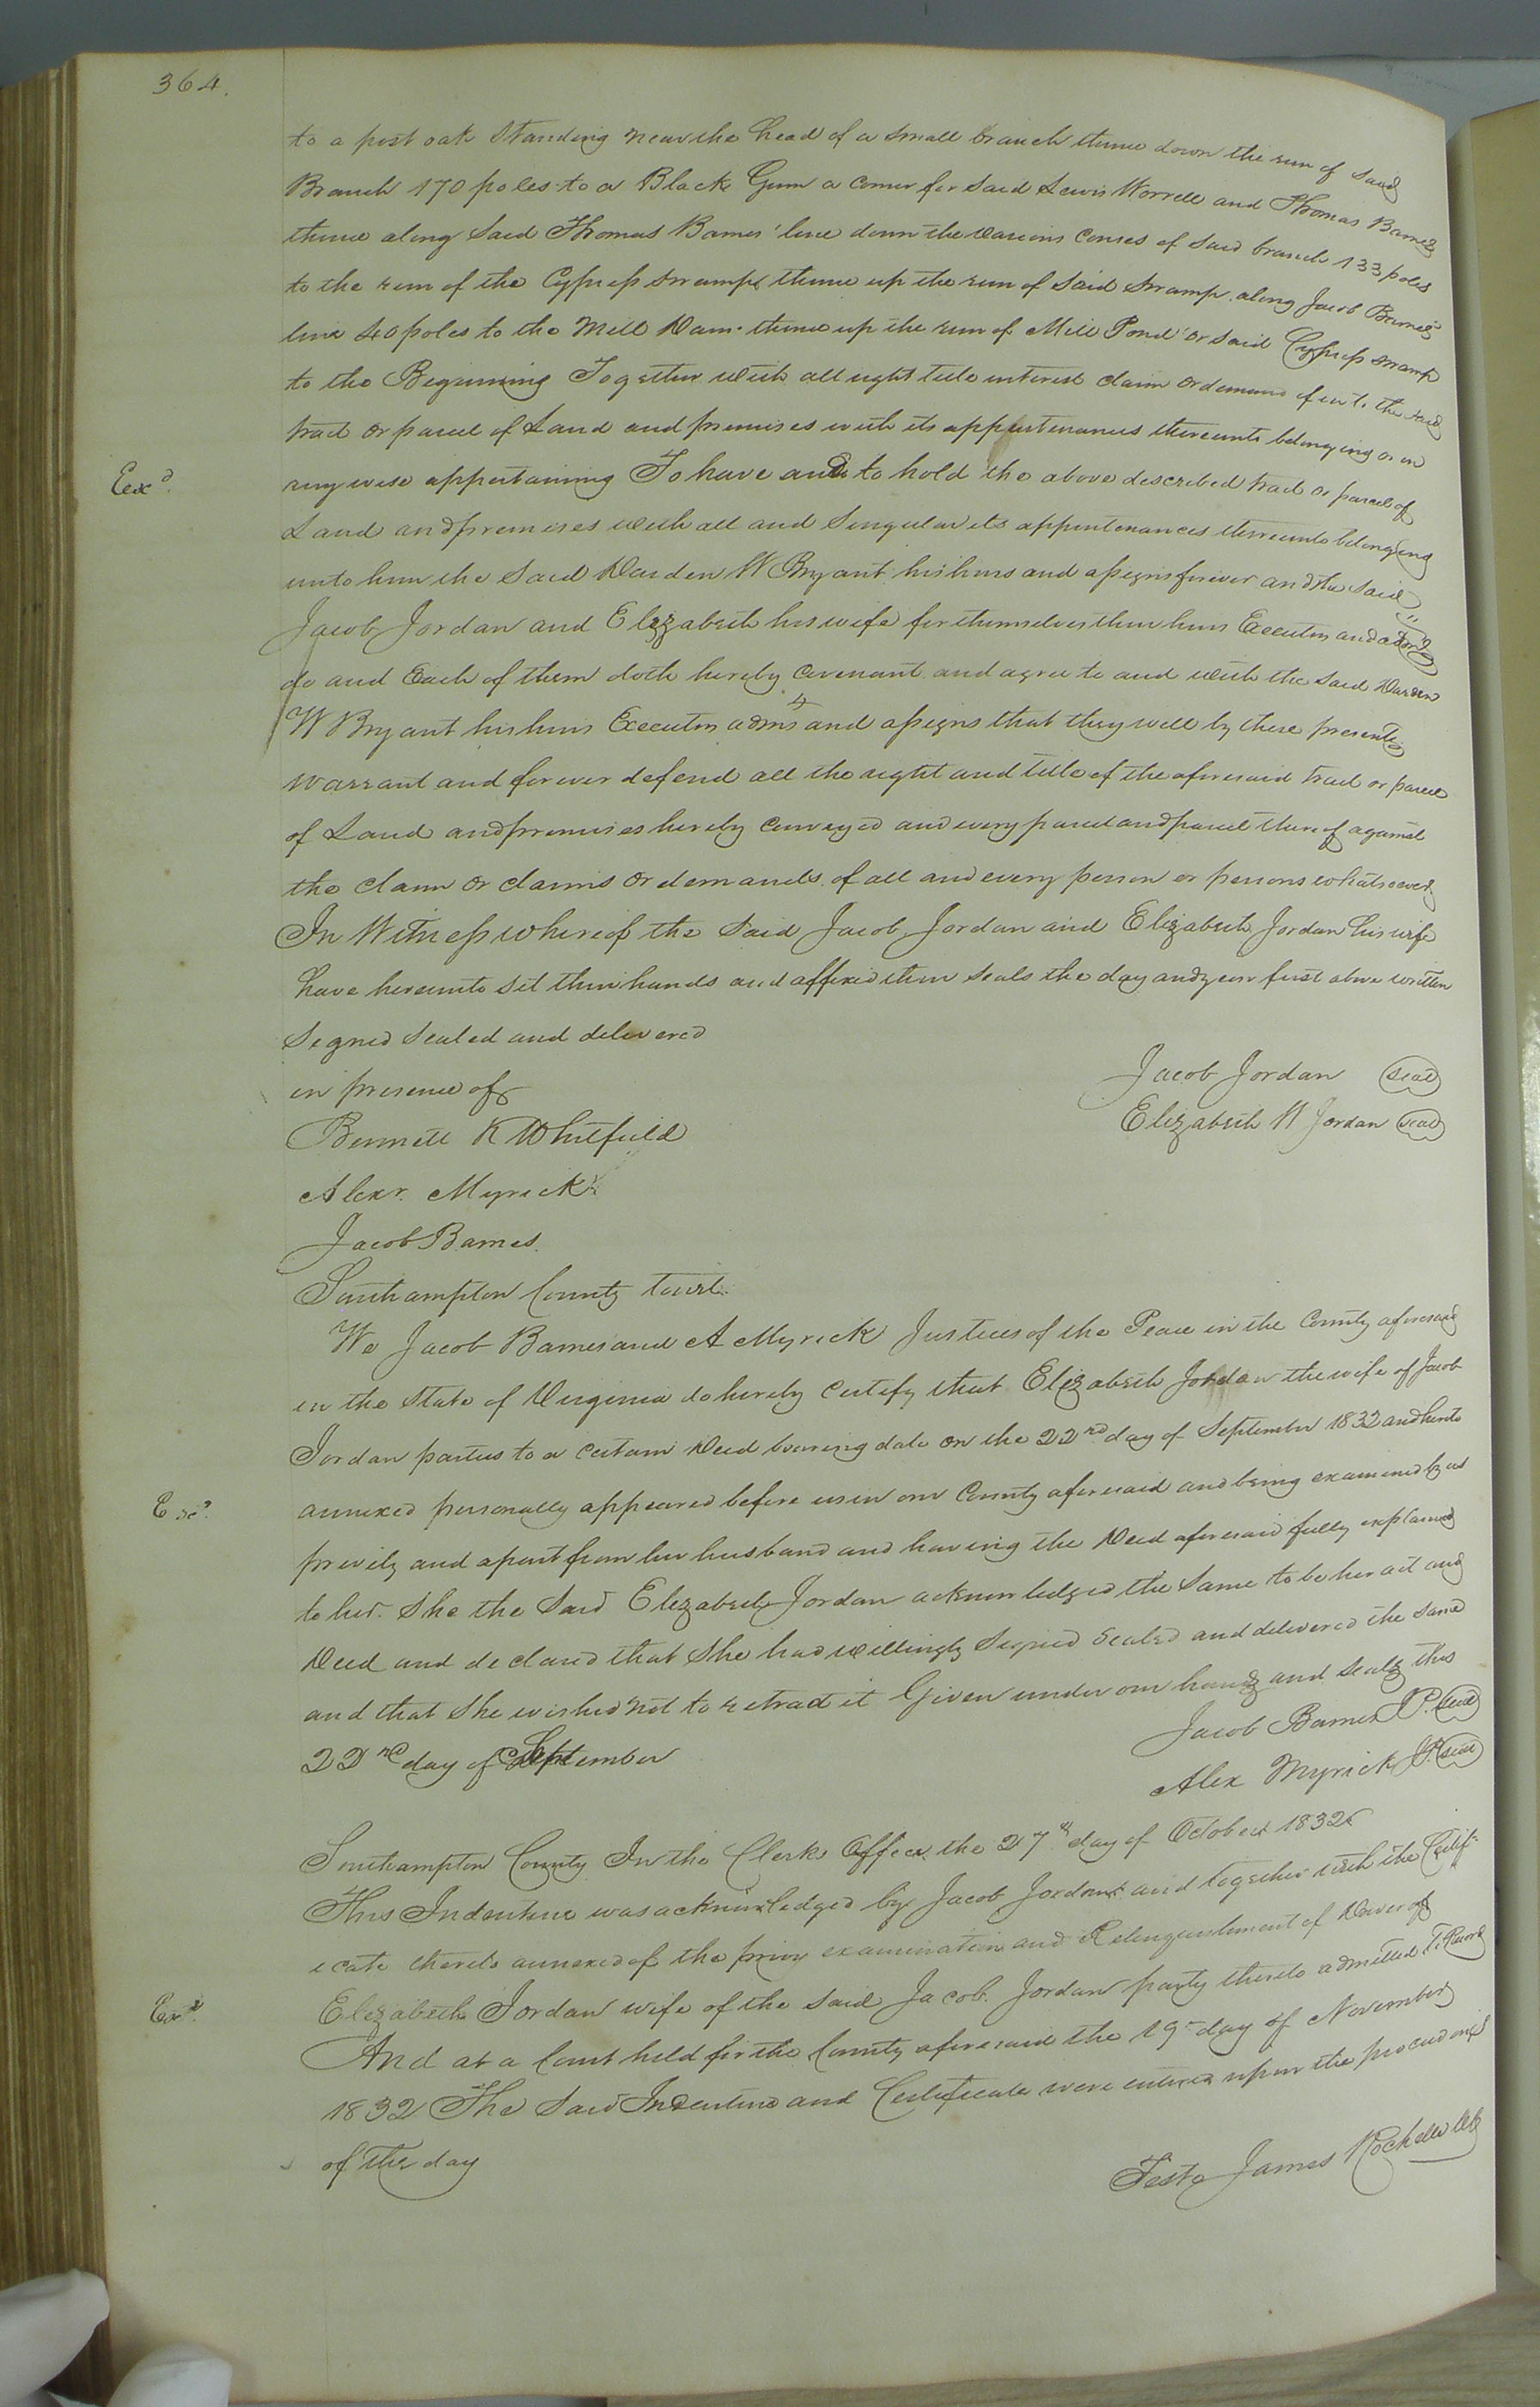 364.
to a post oak Standing near the head of a small branch thence down the run of said
Branch 170 poles to a Black Gum a corner for said Lewis Worrell and Thomas Barnes
thence along said Thomas Barnes' line down the various courses of said branch 133 poles
to the run of the Cypress swamp thence up the run of said swamp along Jacob Barnes
line 40 poles to the Mill Dam thence up the run of Mill Pond or said Cypress swamp
to the Beginning Together with all right title interest claim or demand of in to the said
tract or parcel of Land and premises with its appurtenances thereunto belonging or in
any wise appertaining To have and to hold the above described tract or parcel of
Exd.
Land and premises with all and Singular its appurtenances thereunto belonging
unto him the said Darden W Bryant his heirs and assigns forever and the said
Jacob Jordan and Elizabeth his wife for themselves their heirs Executors and adms
do and Each of them doth hereby covenant and agree to and with the said Darden
W Bryant his heirs Executors adms and assigns that they will by these presents
warrant and forever defend all the right and title of the aforesaid tract or parcel
of Land and premises hereby conveyed and every parcel and parcel thereof against
the claim or claims or demands of all and every person or persons whatsoever
In Witness whereof the said Jacob Jordan and Elizabeth Jordan his wife
have hereunto set their hands and affixed their seals the day and year first above written
Signed Sealed and delivered
in presence of
Jacob Jordan seal
Bennett K Whitfield
Elizabeth W Jordan seal
Alexr. Myrick
Jacob Barnes.
Southampton County Towit.
We Jacob Barnes and A Myrick Justices of the Peace in the County aforesaid
in the State of Virginia do hereby certify that Elizabeth Jordan the wife of Jacob
Jordan parties to a certain Deed bearing date on the 22nd day of September 1832 and hereto
annexed personally appeared before us in our County aforesaid and being examined by us
Exd.
privily and apart from her husband and having the Deed aforesaid fully explained
to her. She the Said Elizabeth Jordan acknowledged the same to be her act and
Deed and declared that She had willingly Signed Sealed and delivered the same
and that She wished not to retract it Given under our hands and seals this
22nd day of September
Jacob Barnes J.P. seal
Alex Myrick J.P. seal
Southampton County In the Clerks Office the 27th day of October 1832
This Indenture was acknowledged by Jacob Jordan and together with the Certif-
icate thereto annexed of the privy examination and Relinquishment of Dower of
Elizabeth Jordan wife of the said Jacob Jordan party thereto admitted To Record
Exd.
And at a Court held for the County aforesaid the 19th day of November
1832 The Said Indenture and Certificate were entered upon the proceedings
of the day
Teste James Rochelle Clk